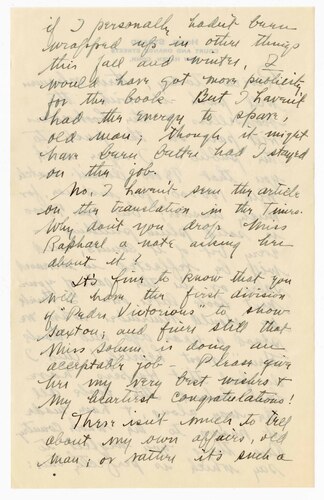 if I personally hadn't been
wrapped up in other things
this fall and winter, I
would have got more publicity
for the book. But I haven't
had the energy to spare,
old man; though it might
have been better had I stayed
on the job.
No, I haven't seen the article
on the translation in the Times.
Why don't you drop Miss
Raphael a note asking her
about it?
It's fine to know that you
will have the first division
of "Peder Victorious" to show
Saxton; and finer still that
Miss Solum is doing an
acceptable job — Please give
her my very best wishes &
my heartiest congratulations!
There isn't much to tell
about my own affairs, old
man; or rather it's such a